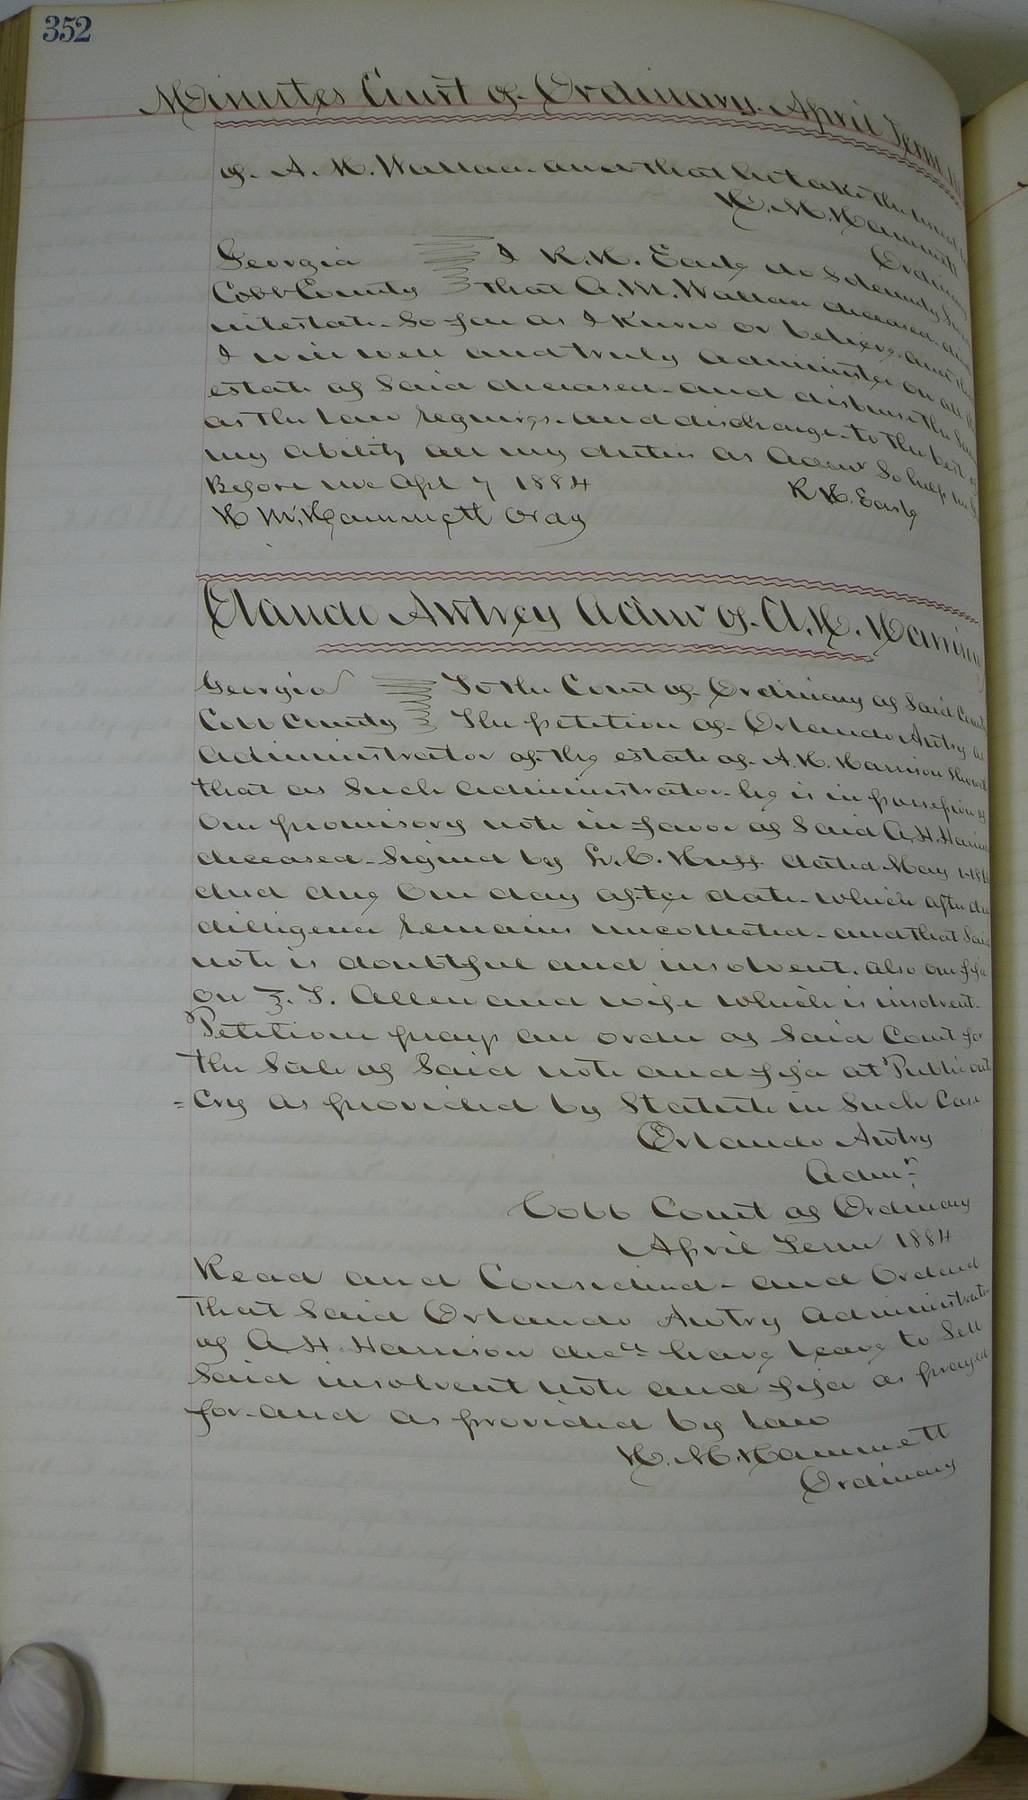 352
Minutes Court of Ordinary April Term
of A. M. Wallace and that he take the
H. M. Hammett
Ordinary
Georgia I R. H. Early do Solemnly
Cobb County that A. M. Wallace deceased
intestate So far as I know or believe and
I will well and truly administer on all
estate of Said deceased and disburse the
as the Law requires and discharge to the best of
my ability all my duties as Admr So help me
Before me Apl 7 1884 R H. Early
H M. Hammett Ordy
Orlando Awtrey Admr of A. H. Harrison
Georgia To the Court of Ordinary of Said County
Cobb County The petition of Orlando Awtry as
administrator of the estate of A. H. Harrison Shows
that as Such administrator he is in possession of
One promisory note in favor of Said A. H. Harrison
deceased Signed by L. C. Huff dated May
and due One day after date which after due
dilligence remains uncollected and that Said
note is doubtful and insolvent. also one fifa
on Z. T. Allen and wife which is insolvent
Petition prays an order of Said Court for
the Sale of Said note and fifa at Public out
= Cry as provided by Statute in Such Case
Orlando Awtry
Admr
Cobb Court of Ordinary
April Term 1884
Read and Considered and Ordered
That Said Orlando Awtry administrator
of A. H. Harrison decd have leave to Sell
Said insolvent note and fifa as prayed
for and as provided by law
H. M. Hammett
Ordinary